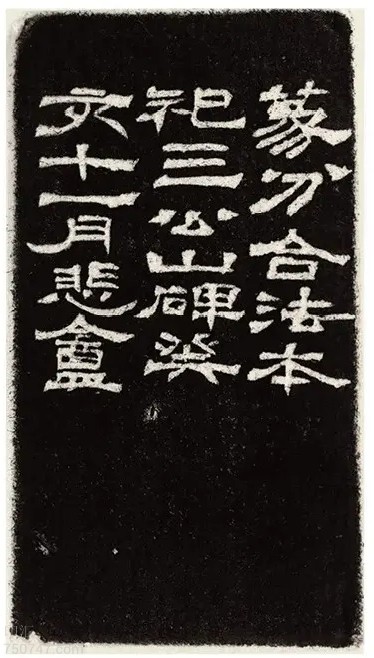 篆分合法本
祀三公山碑癸
亥十一月悲盫
750747.com